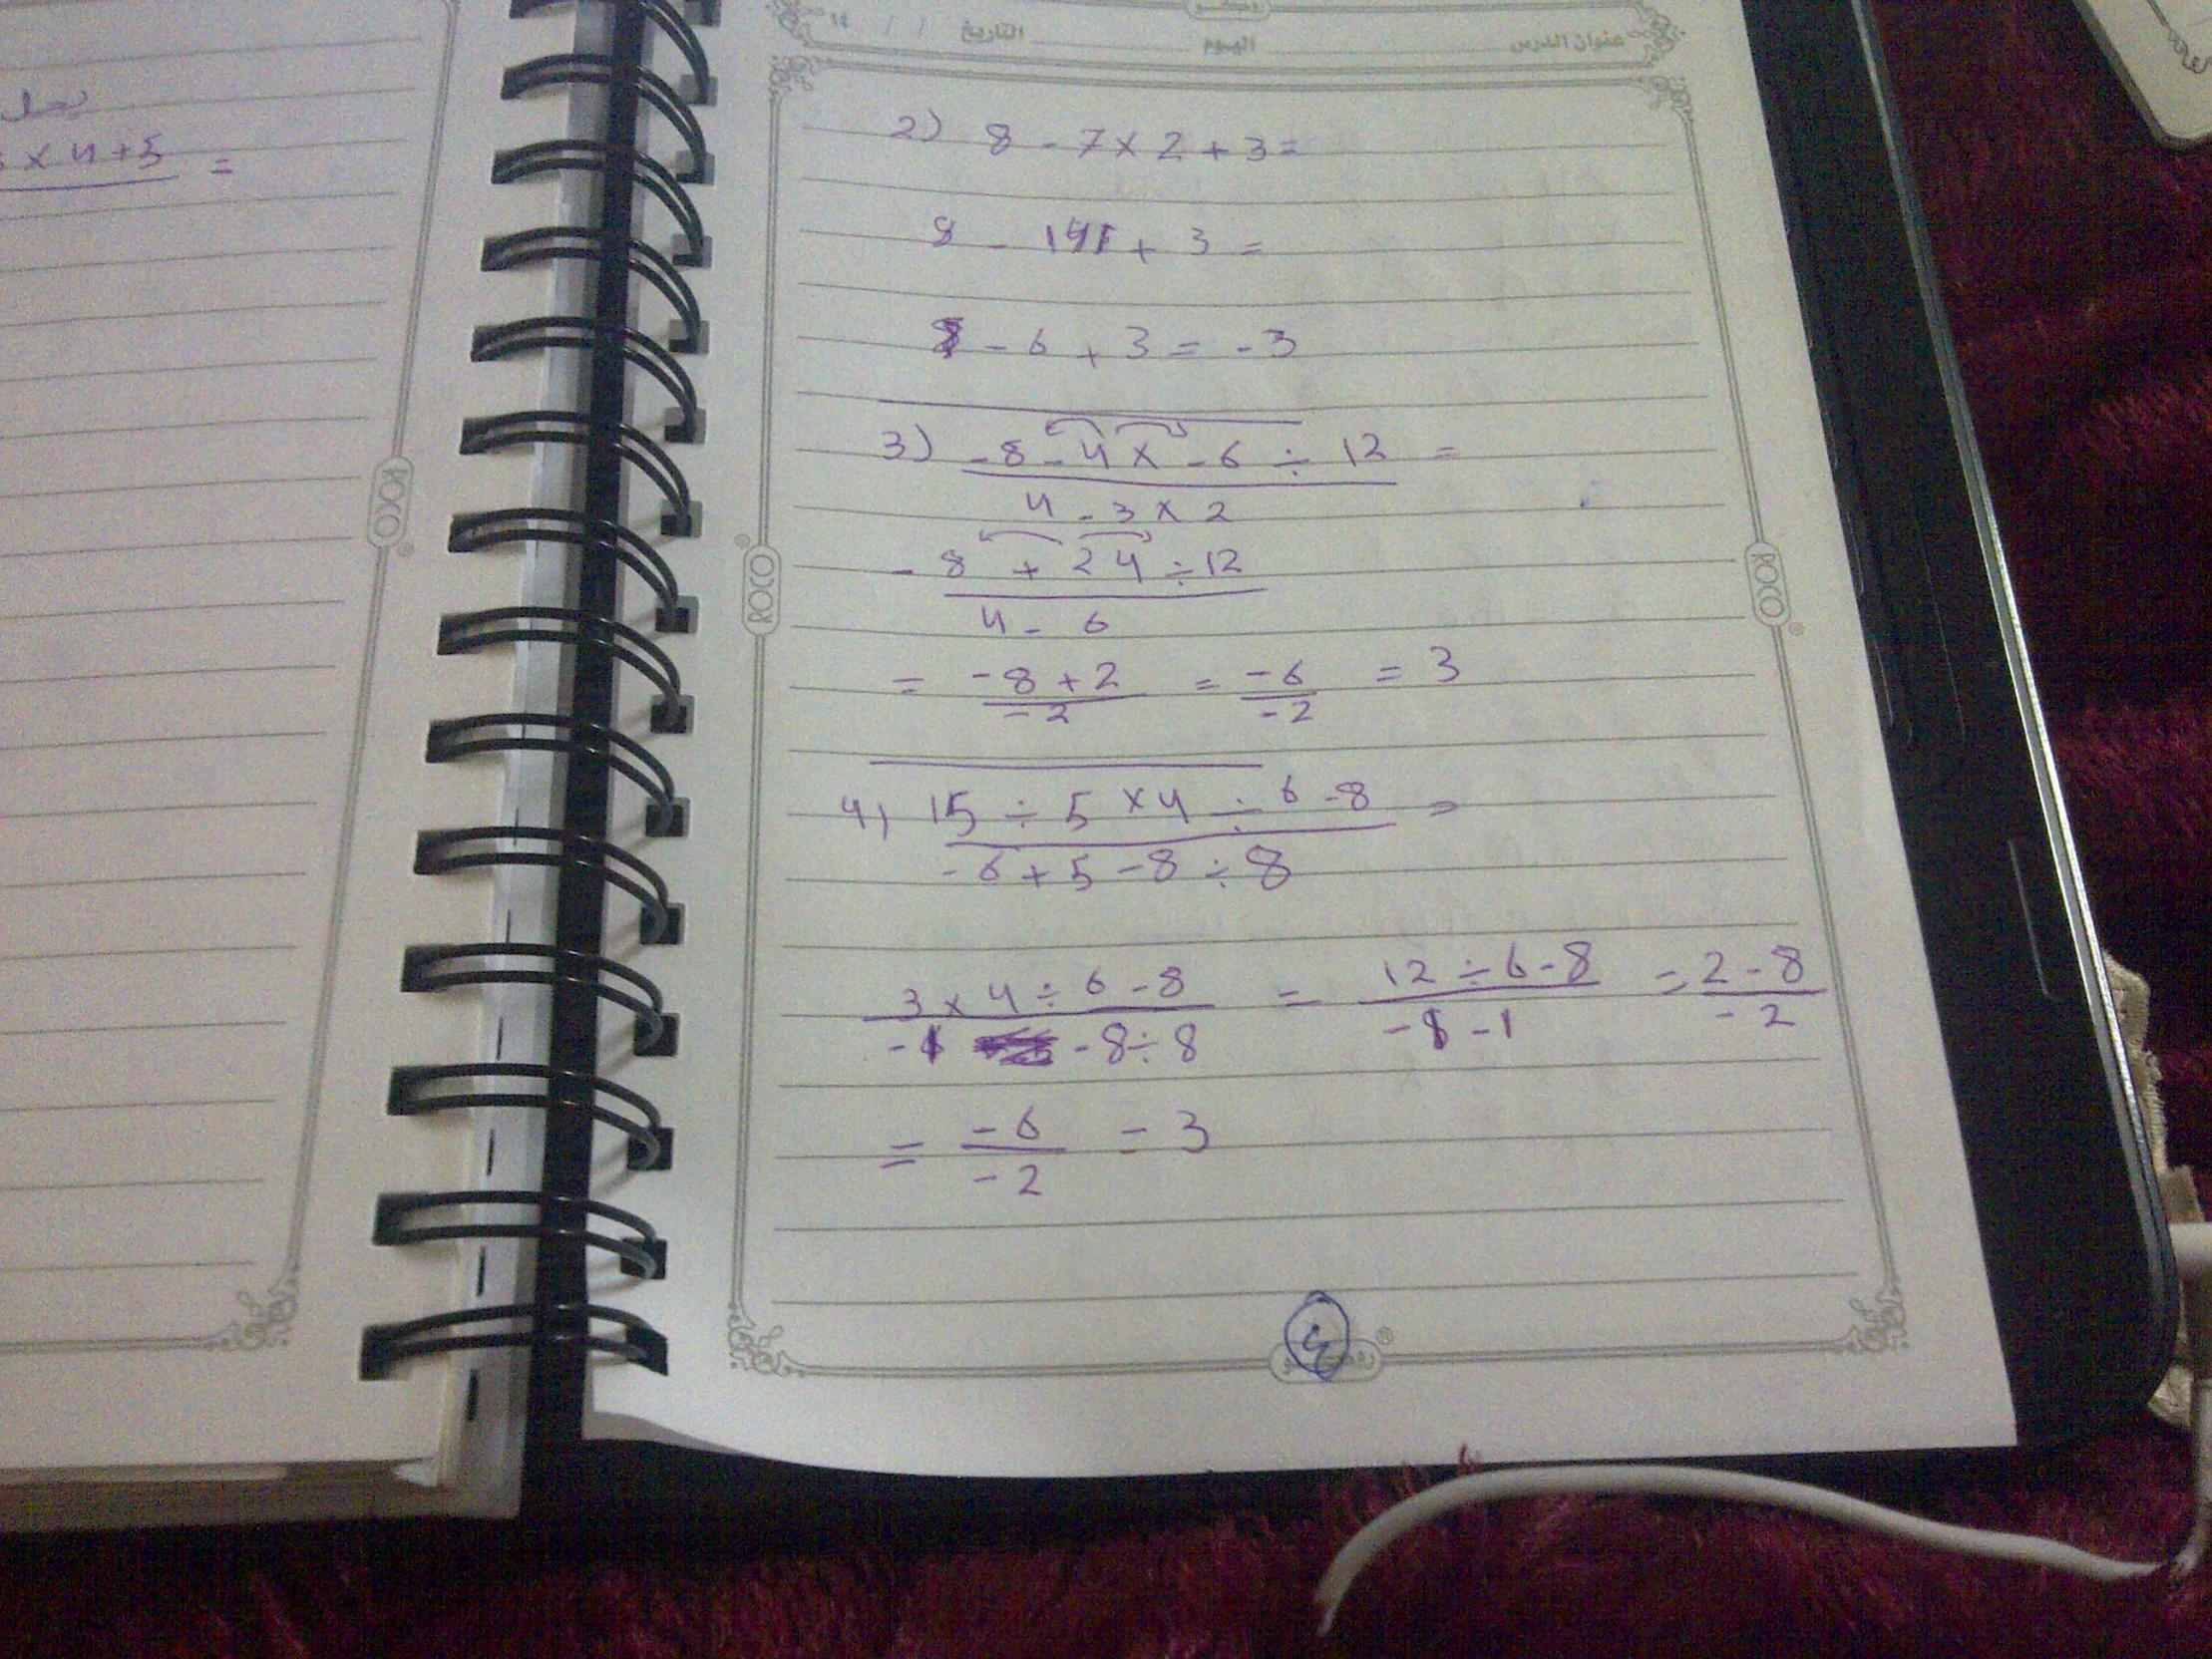 × 4 + 5 =
عنوان الدرس اليوم التاريخ / / ١٤
2) 8 - 7 × 2 + 3 =
8 - 14 + 3 =
- 6 + 3 = - 3
3) - 8 - 4 × - 6 ÷ 12 =
4 - 3 × 2
- 8 + 24 ÷ 12
4 - 6
= - 8 + 2 = - 6 = 3
- 2 - 2
4) 15 ÷ 5 × 4 ÷ 6 - 8 =
- 6 + 5 - 8 ÷ 8
3 × 4 ÷ 6 - 8 = 12 ÷ 6 - 8 = 2 - 8
- 1 - 8 ÷ 8 - 1 - 1 - 2
= - 6 = 3
- 2
ROCO
ROCO
ROCO